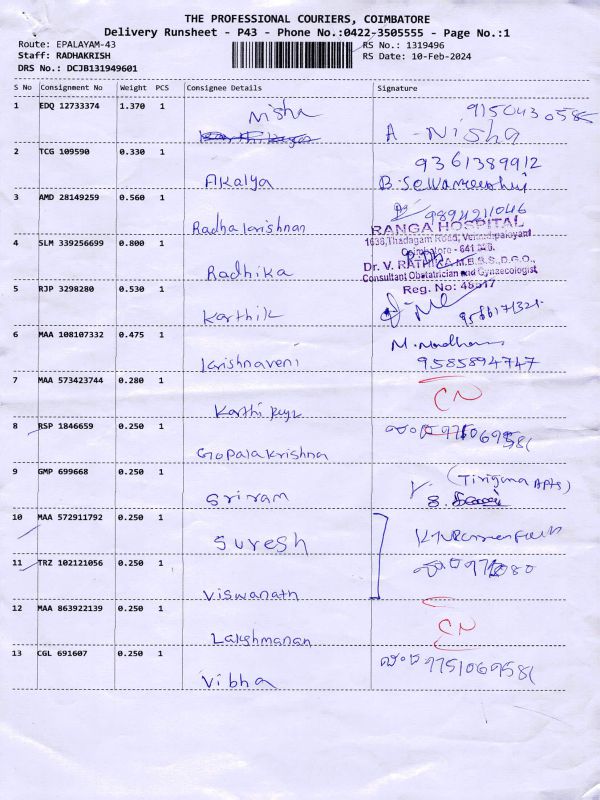 THE PROFESSIONAL COURIERS, COIMBATORE
Delivery Runsheet - P43 - Phone No.:0422-3505555 - Page No.:1
Route: EPALAYAM-43
RS No.: 1319496
Staff: RADHAKRISH
RS Date: 10-Feb-2024
DRS No.: DCJB131949601
S No Consignment No Weight PCS Consignee Details Signature
1 EDQ 12733374 1.370 1 Nisha 9150430585
A - Nisha
2 TCG 109590 0.330 1 Akalya 9361389912
3 AMD 28149259 0.560 1 Radha krishnan 9894211046
RANGA HOSPITAL
1638,Thadagam Road, Venkitapalayam
Coimbatore - 641 025.
4 SLM 339256699 0.800 1 Radhika
Dr. V. RATHIKA M.B.B.S.,D.G.O.,
Consultant Obstatrician and Gynaecologist
Reg. No: 48517
5 RJP 3298280 0.530 1 Karthik
6 MAA 108107332 0.475 1 krishnaveni
9585894747
7 MAA 573423744 0.280 1 Karthi CN
8 RSP 1846659 0.250 1 Gopala krishna
9 GMP 699668 0.250 1 Sriram
10 MAA 572911792 0.250 1 Suresh
11 TRZ 102121056 0.250 1 Viswanath
12 MAA 863922139 0.250 1 Lakshmanan CN
13 CGL 691607 0.250 1 Vibha 9751069581